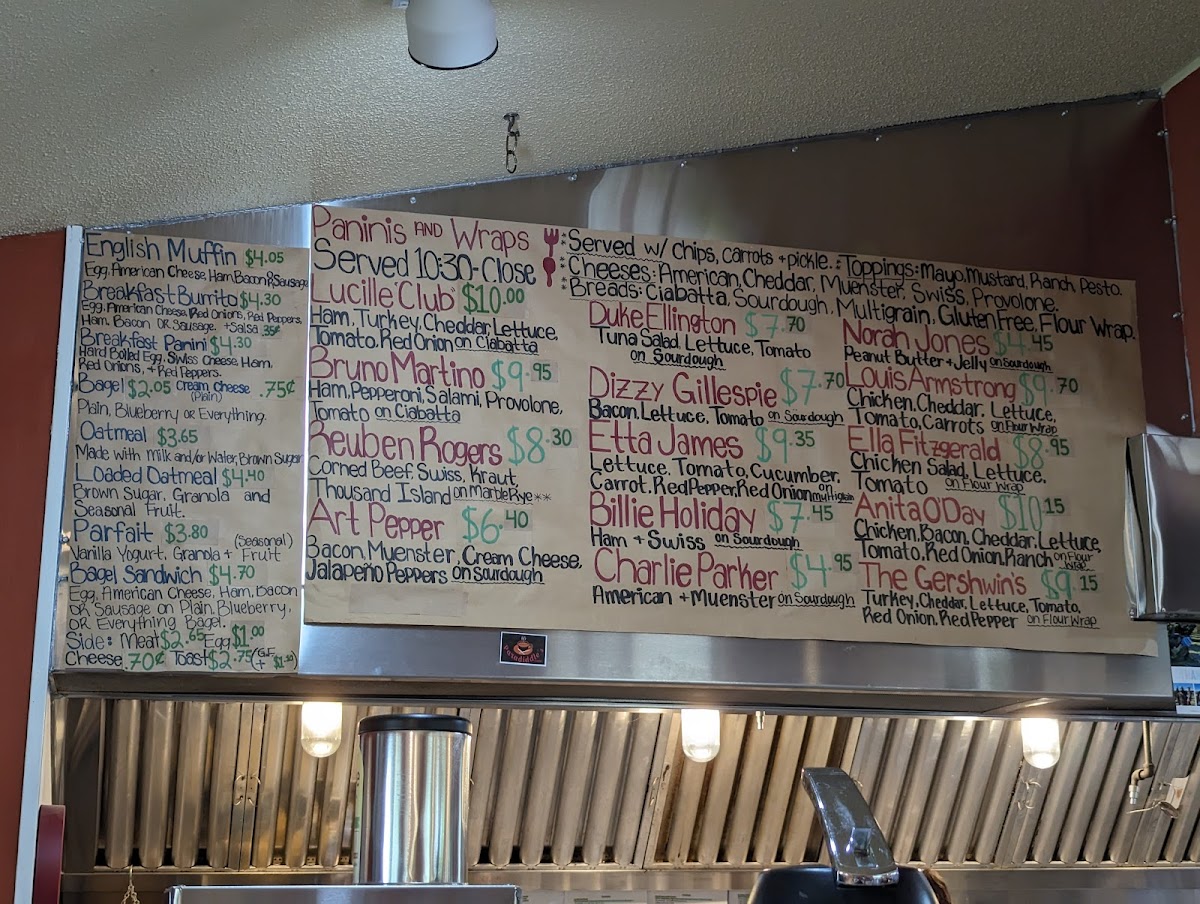 English Muffin $4.05
Egg, American Cheese, Ham, Bacon OR Sausage
Breakfast Burrito $4.30
Egg, American Cheese, Red Onions, Red Peppers,
Ham, Bacon OR Sausage. +Salsa 35¢
Breakfast Panini $4.30
Hard Boiled Egg, Swiss Cheese, Ham,
Red Onions, + Red Peppers.
Bagel $2.05 Cream Cheese .75¢
(Plain)
Plain, Blueberry or Everything.
Oatmeal $3.65
Made with Milk and/or Water, Brown Sugar
Loaded Oatmeal $4.40
Brown Sugar, Granola and
Seasonal Fruit.
Parfait $3.80 (Seasonal)
Vanilla Yogurt, Granola + Fruit
Bagel Sandwich $4.70
Egg, American Cheese, Ham, Bacon
OR Sausage on Plain, Blueberry,
OR Everything Bagel.
Side: Meat $2.65 Egg $1.00
Cheese .70¢ Toast $2.75 (G.F.
Paninis AND Wraps
Served 10:30-Close
Lucille "Club" $10.00
Ham, Turkey, Cheddar, Lettuce,
Tomato, Red Onion on Ciabatta
Bruno Martino $9.95
Ham, Pepperoni, Salami, Provolone,
Tomato on Ciabatta
Reuben Rogers $8.30
Corned Beef, Swiss, Kraut,
Thousand Island on Marble Rye**
Art Pepper $6.40
Bacon, Muenster, Cream Cheese,
Jalapeño Peppers on Sourdough
*Served w/ chips, carrots + pickle. *Toppings: Mayo, Mustard, Ranch, Pesto.
*Cheeses: American, Cheddar, Muenster, Swiss, Provolone.
*Breads: Ciabatta, Sourdough, Multigrain, Gluten Free, Flour Wrap.
Duke Ellington $7.70
Tuna Salad, Lettuce, Tomato
on Sourdough
Dizzy Gillespie $7.70
Bacon, Lettuce, Tomato on Sourdough
Etta James $9.35
Lettuce, Tomato, Cucumber,
Carrot, Red Pepper, Red Onion on Multigrain
Billie Holiday $7.45
Ham + Swiss on Sourdough
Charlie Parker $4.95
American + Muenster on Sourdough
Norah Jones $4.45
Peanut Butter + Jelly on Sourdough
Louis Armstrong $9.70
Chicken, Cheddar, Lettuce,
Tomato, Carrots on Flour Wrap
Ella Fitzgerald $8.95
Chicken Salad, Lettuce,
Tomato on Flour Wrap
Anita O'Day $10.15
Chicken, Bacon, Cheddar, Lettuce,
Tomato, Red Onion, Ranch on Flour
Wrap
The Gershwin's $9.15
Turkey, Cheddar, Lettuce, Tomato,
Red Onion, Red Pepper on Flour Wrap